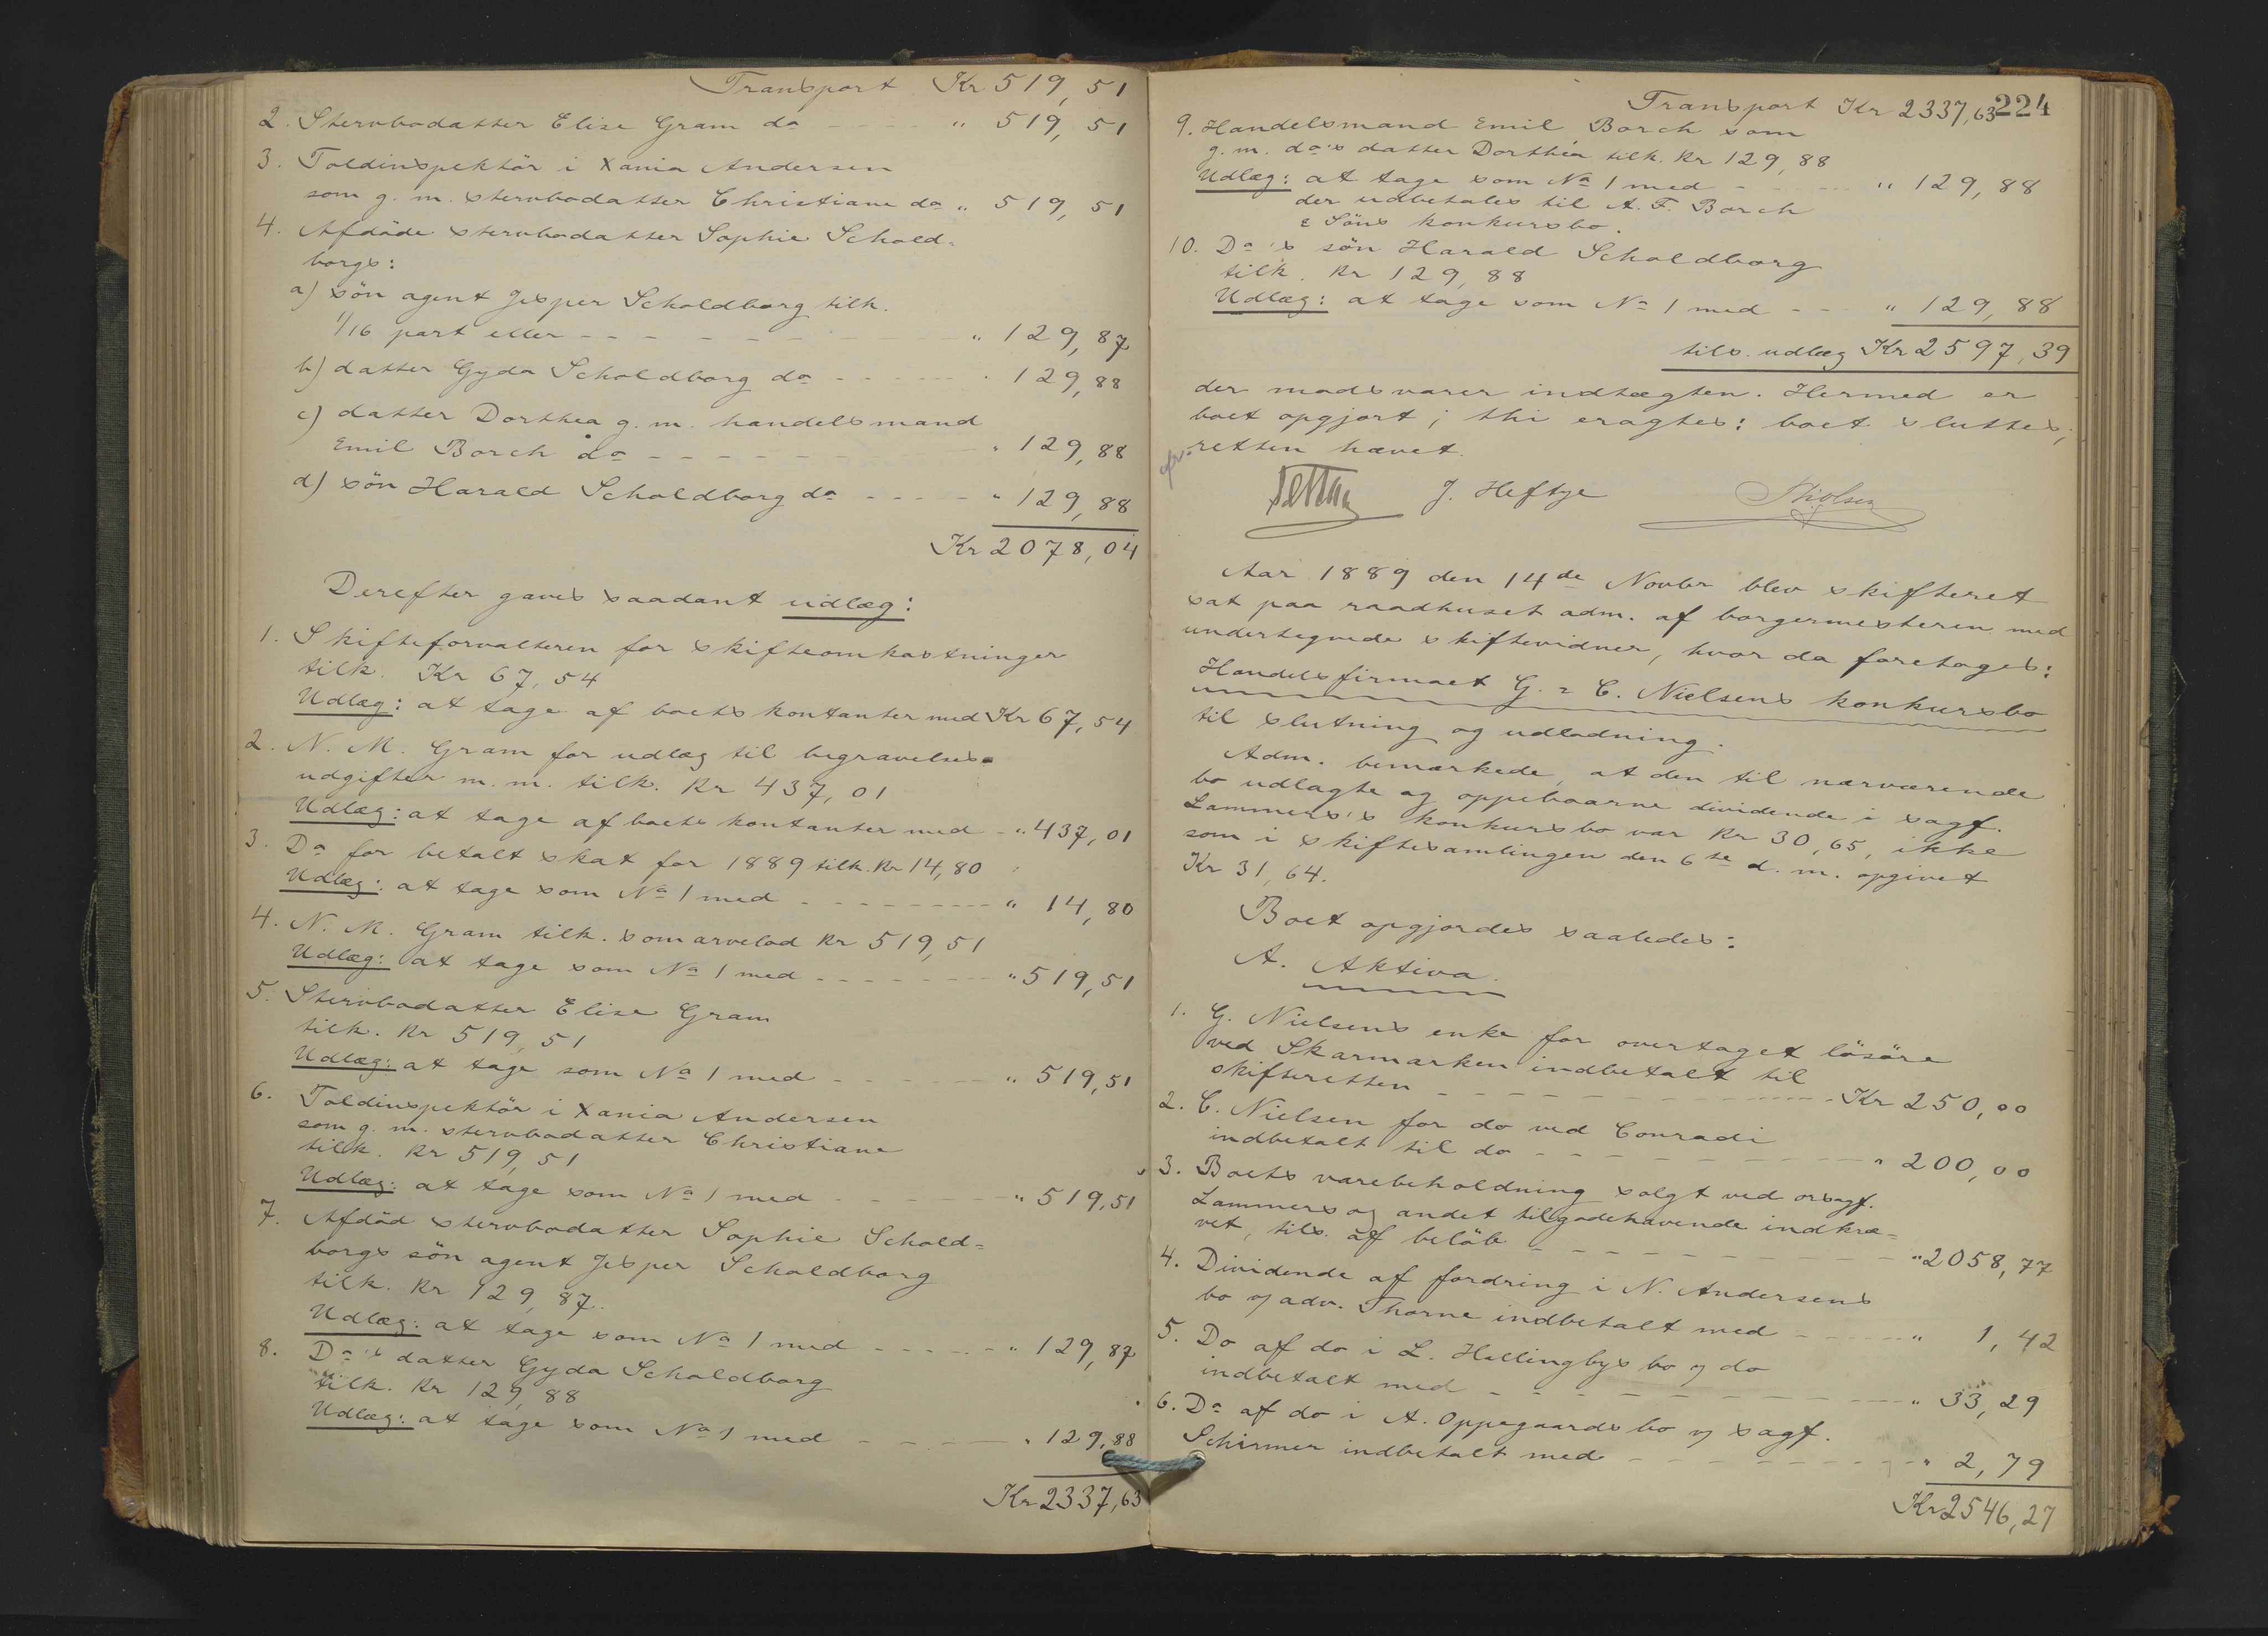 Transport Kr 519,51
2. Stervbodatter Elise Gram do - - - " 519,51
3. Toldinspektör i Xania Andersen
som g. m. stervbodatter Christiane do " 519,51
4. Afdöde stervbodatter Sophie Schold-
borgs:
a) sön agent Jesper Scholdborg tilk.
1/16 part eller - - - " 129,87
b) datter Gyda Scholdborg do - - - " 129,88
c) datter Dorthea g. m. handelsmand
Emil Borch do - - - " 129,88
d) sön Harald Scholdborg do - - - " 129,88
Kr 2078,04
Derefter gaves saadant udlæg:
1. Skifteforvalteren for skifteomkostninger
tilk. Kr 67,54
Udlæg: at tage af boets kontanter med Kr 67,54
2. N. M. Gram for udlæg til begravelses-
udgifter m. m. tilk. Kr 437,01
Udlæg: at tage af boets kontanter med - " 437,01
3. Do for betalt skat for 1889 tilk. Kr 14,80
Udlæg: at tage som No 1 med - - - " 14,80
4. N. M. Gram tilk. som arvelod Kr 519,51
Udlæg: at tage som No 1 med - - - " 519,51
5. Stervbodatter Elise Gram
tilk. Kr 519,51
Udlæg: at tage som No 1 med - - - " 519,51
6. Toldinspektör i Xania Andersen
som g. m. stervbodatter Christiane
tilk. Kr 519,51
Udlæg: at tage som No 1 med - - - " 519,51
7. Afdöd stervbodatter Sophie Schold-
borgs sön agent Jesper Scholdborg
tilk. Kr 129,87.
Udlæg: at tage som No 1 med - - - " 129,87
8. Do's datter Gyda Scholdborg
tilk. Kr 129,88
Udlæg: at tage som No 1 med - - - " 129,88
Kr 2337,63
Transport Kr 2337,63 224
9. Handelsmand Emil Borch som
g. m. do's datter Dorthea tilk. Kr 129,88
Udlæg: at tage som No 1 med - - - " 129,88
der udbetales til A. F. Borch
& Söns konkursbo.
10. Do's sön Harald Scholdborg
tilk. Kr 129,88
Udlæg: at tage som No 1 med - - - " 129,88
tils. udlæg Kr 2597,39
der modsvarer indtægten. Hermed er
boet opgjort; thi eragtes: boet sluttes;
retten hævet.
J. Heftye
Aar 1889 den 14de Novbr blev skifteret
sat paa raadhuset adm. af borgermesteren med
undertegnede skiftevidner, hvor da foretoges:
Handelsfirmaet G. & C. Nielsens konkursbo
til slutning og udlodning.
Adm. bemærkede, at den til nærværende
bo udlagte og oppebaarne dividende i sagf.
Lammers's konkursbo var Kr 30,65, ikke
som i skiftesamlingen den 6te d. m. opgivet
Kr 31,64.
Boet opgjordes saaledes:
A. Aktiva.
1. G. Nielsens enke for overtaget lösöre
ved Skarmarken indbetalt til
skifteretten - - - Kr 250,00
2. C. Nielsen for do ved Conradi
indbetalt til do - - - " 200,00
3. Boets varebeholdning solgt ved orsagf.
Lammers og andet tilgodehavende indkræ-
vet, tils. af belöb - - - " 2058,77
4. Dividende af fordring i N. Andersens
bo v/ adv. Thorne indbetalt med - - - " 1,42
5. Do af do i L. Hellingbys bo v/ do
indbetalt med - - - " 33,29
6. Do af do i A. Oppegaards bo v/ sagf.
Schirmer indbetalt med - - - " 2,79
Kr 2546,27